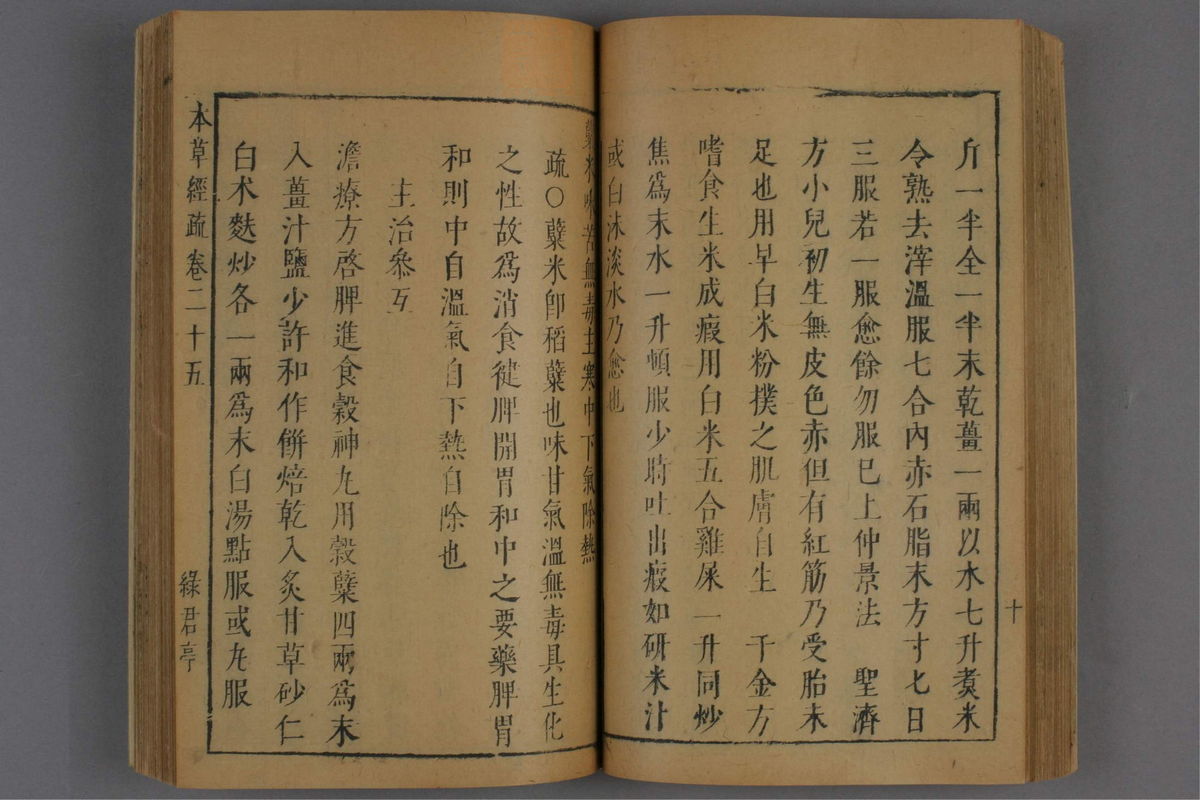 斤一半全一半末乾薑一兩以水七升煑米
令熟去滓溫服七合內赤石脂末方寸匕日
三服若一服愈餘勿服已上仲景法 聖濟
方小兒初生無皮色赤但有紅筋乃受胎未
足也用早白米粉撲之肌膚自生 千金方
嗜食生米成瘕用白米五合雞屎一升同炒
焦爲末水一升頓服少時吐出瘕如研米汁
或白沫淡水乃愈也
十
糵米味苦無毒主寒中下氣除熱
疏〇糵米卽稻糵也味甘氣溫無毒具生化
之性故爲消食健脾開胃和中之要藥脾胃
和則中自溫氣自下熱自除也
主治參互
澹療方啓脾進食穀神丸用穀糵四兩爲末
入薑汁鹽少許和作餅焙乾入炙甘草砂仁
白术麩炒各一兩爲末白湯點服或丸服
本草經疏 卷二十五
綠君亭